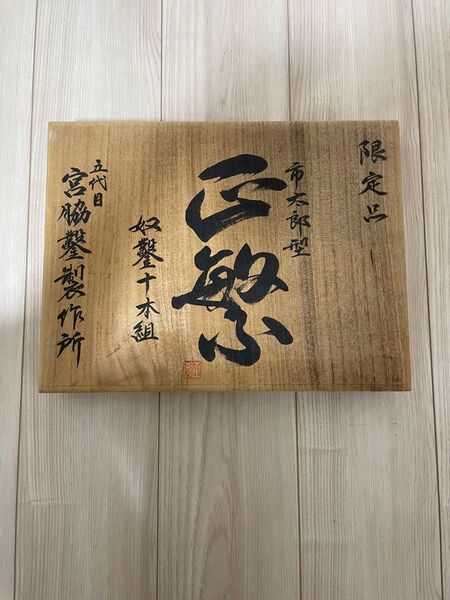 限定品
市太郎型
正繁
奴鑿十本組
五代目
宮脇鑿製作所